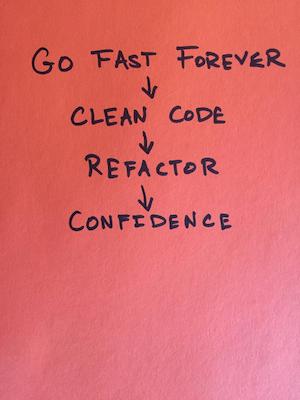 GO FAST FOREVER
↓
CLEAN CODE
↓
REFACTOR
↓
CONFIDENCE